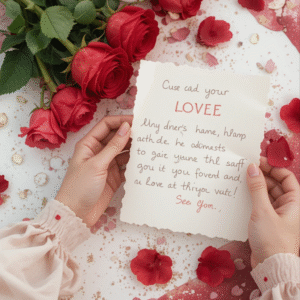 Cuse cad your
LOVEE
Uny dner's hame, hlamp
acth.de. he adomasts
to gaie youne thl saff
gou it you fovend and.
a love at thisyou vutc!
See Gon.